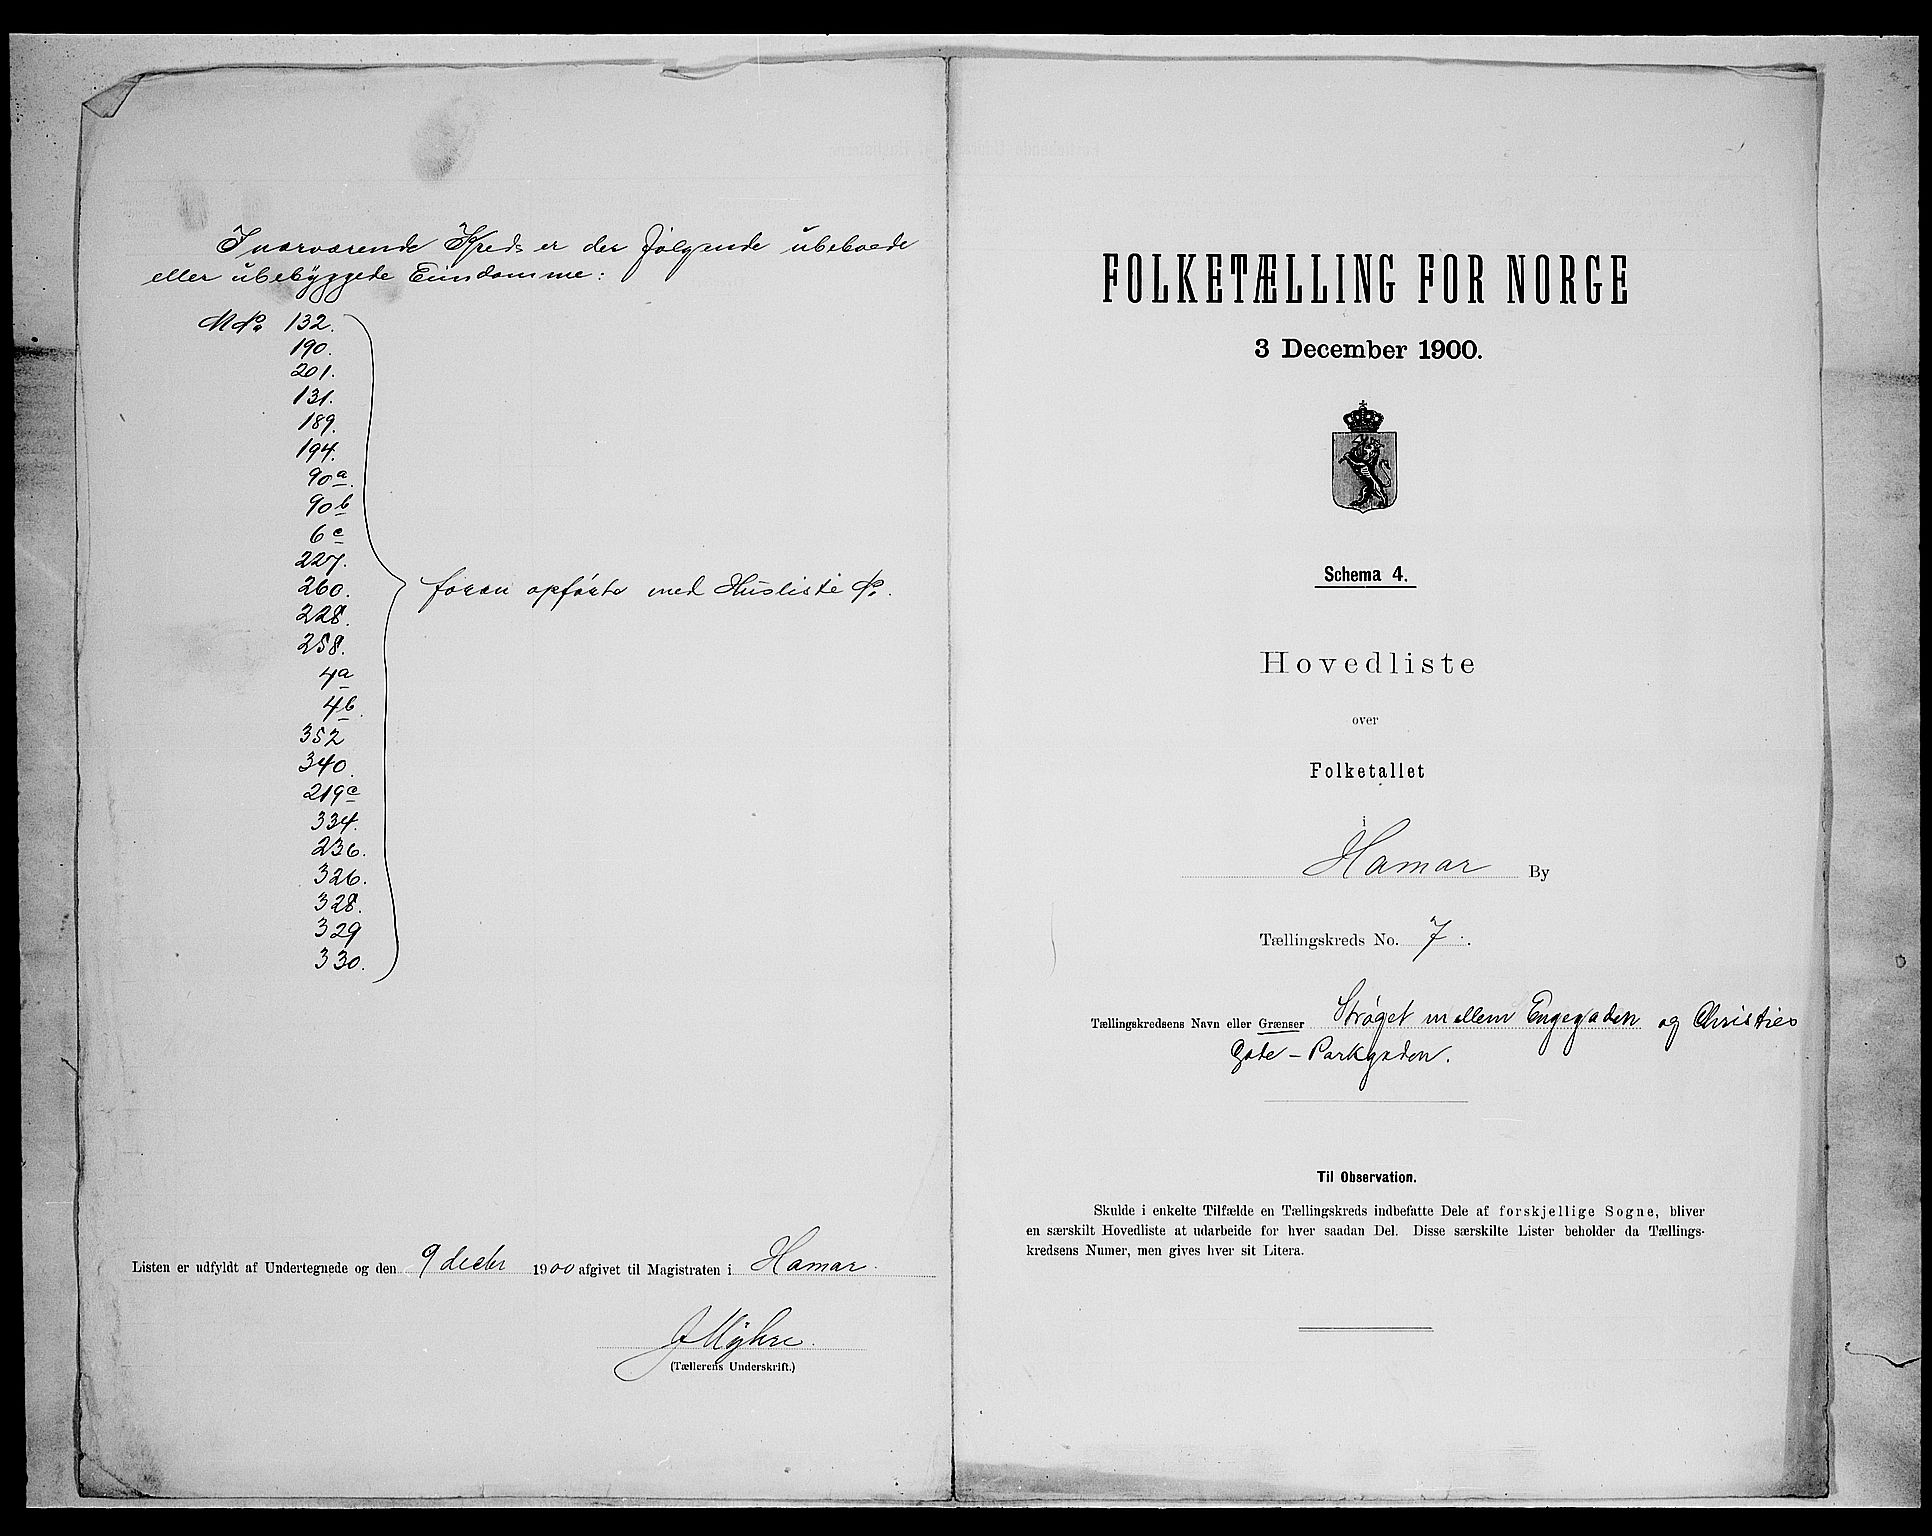 I nærværende Kreds er der følgende ubeboede
eller ubebyggede Eiendomme:
M No. 132.
190.
201.
131.
189.
194.
90a.
90b
6c
227.
260.
228.
258.
4a
4b.
352
340.
219c
334.
236.
326.
328.
329
330.
foran opførte med Husliste No.
Listen er udfyldt af Undertegnede og den 9 decbr 1900 afgivet til Magistraten i Hamar.
J Myhre.
(Tællerens Underskrift.)
FOLKETÆLLING FOR NORGE
3 December 1900.
Schema 4.
Hovedliste
over
Folketallet
i
Hamar By
Tællingskreds No. 7.
Tællingskredsens Navn eller Grænser Strøget mellem Engegaden og Christies
Gade – Parkgaden.
Til Observation.
Skulde i enkelte Tilfælde en Tællingskreds indbefatte Dele af forskjellige Sogne, bliver
en særskilt Hovedliste at udarbeide for hver saadan Del. Disse særskilte Lister beholder da Tællings-
kredsens Numer, men gives hver sit Litera.